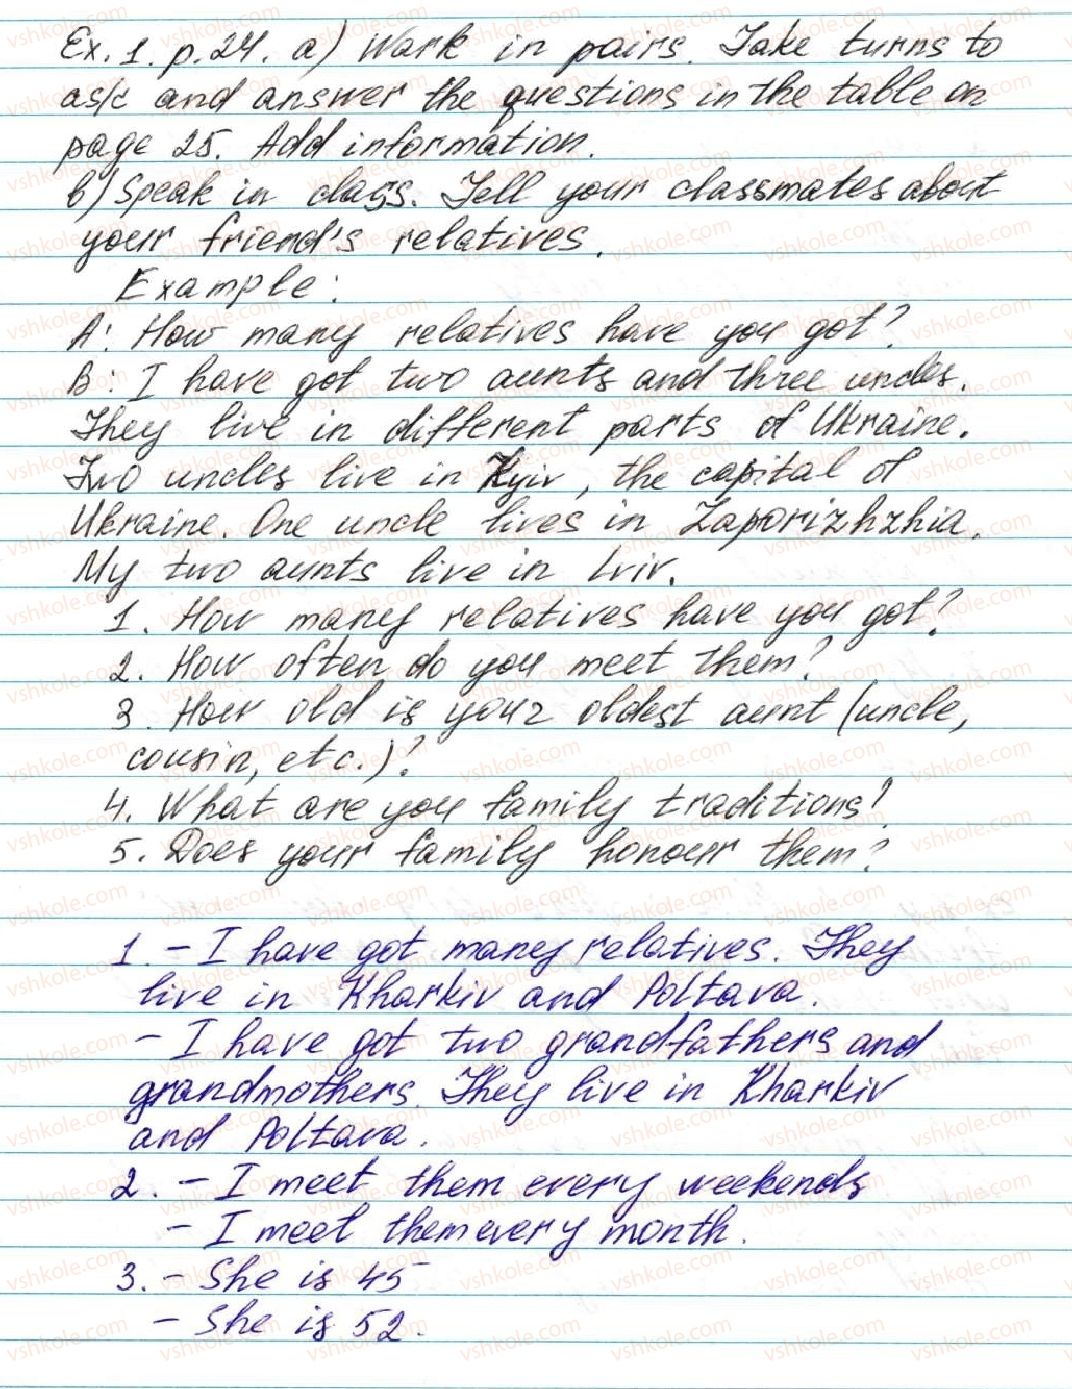 Ex. 1. p. 24. a) Work in pairs. Take turns to
ask and answer the questions in the table on
page 25. Add information.
b) Speak in class. Tell your classmates about
your friend's relatives.
Example:
A: How many relatives have you got?
B: I have got two aunts and three uncles.
They live in different parts of Ukraine.
Two uncles live in Kyiv, the capital of
Ukraine. One uncle lives in Zaporizhzhia.
My two aunts live in Lviv.
1. How many relatives have you got?
2. How often do you meet them?
3. How old is your oldest aunt (uncle,
cousin, etc.)?
4. What are you family traditions?
5. Does your family honour them?
1. – I have got many relatives. They
live in Kharkiv and Poltava.
– I have got two grandfathers and
grandmothers. They live in Kharkiv
and Poltava.
2. – I meet them every weekends
– I meet them every month.
3. – She is 45
– She is 52.
vshkole.com